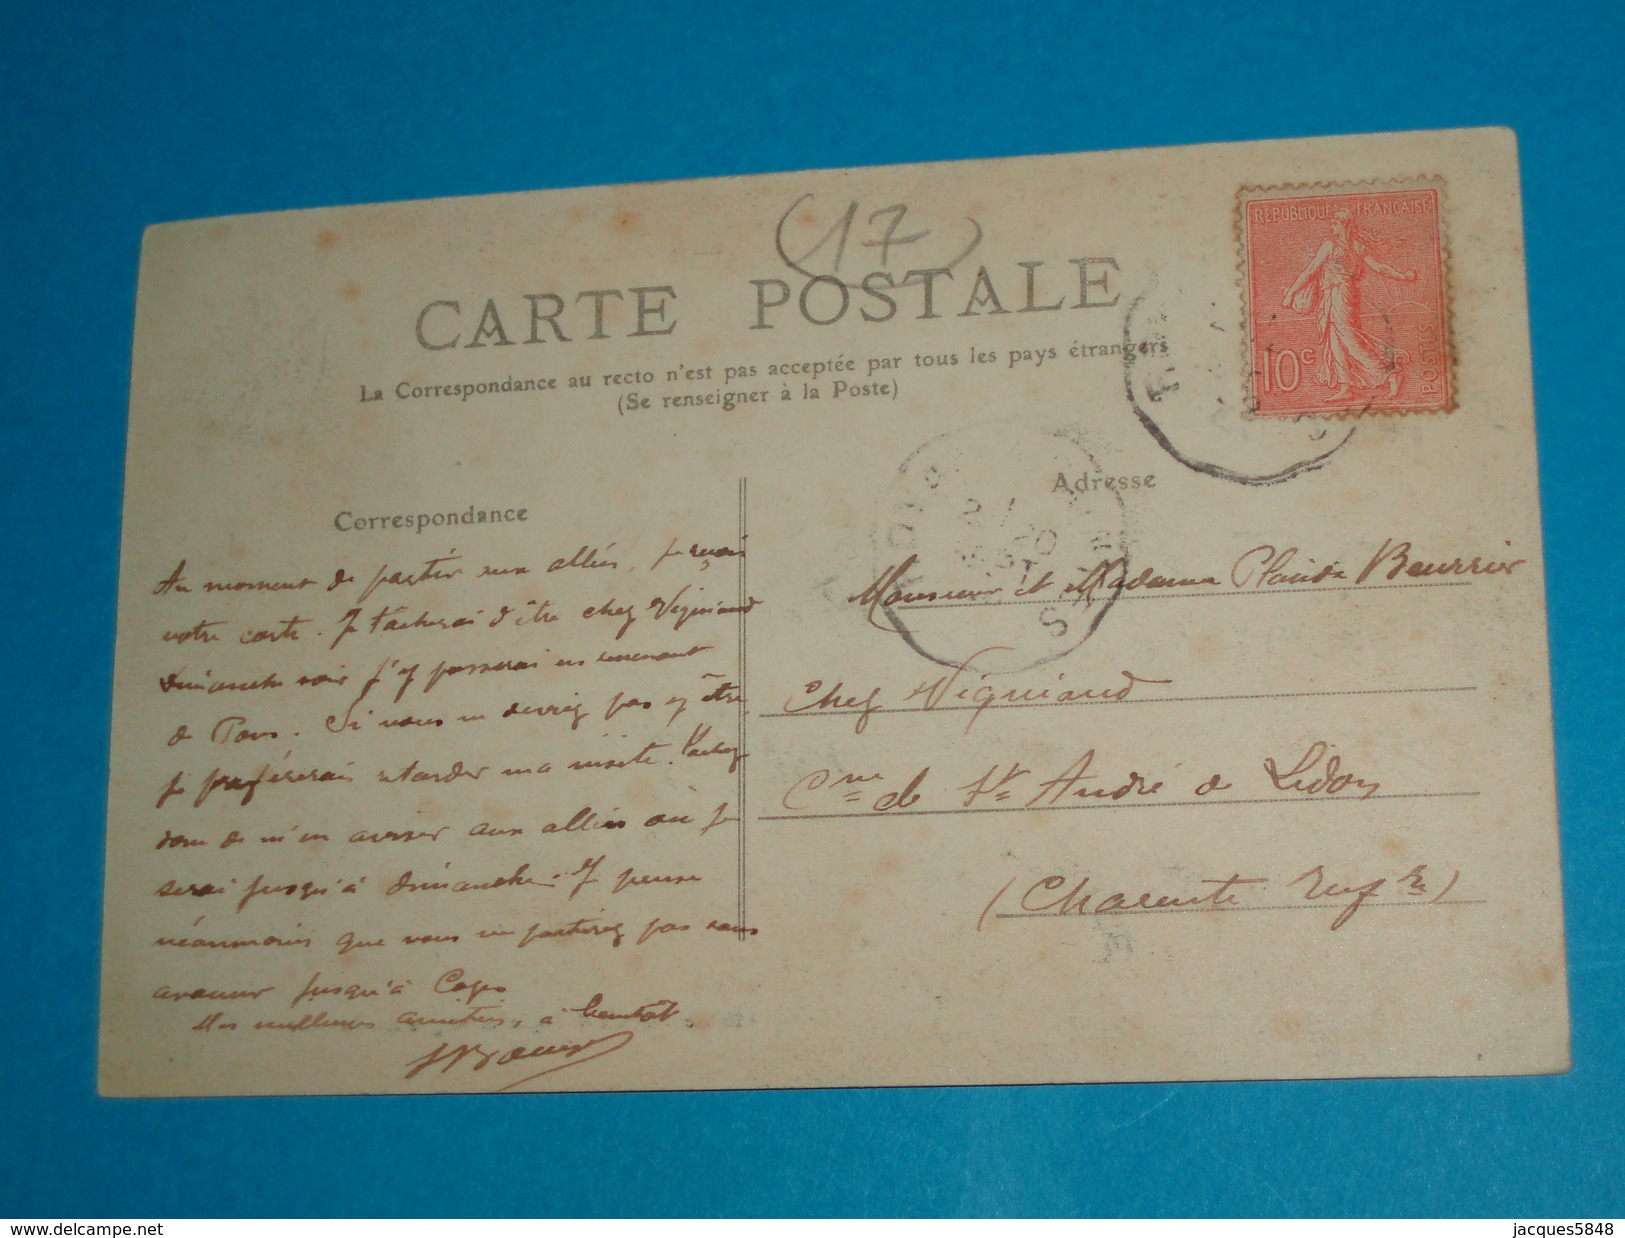 (17)
CARTE POSTALE
La Correspondance au recto n'est pas acceptée par tous les pays étrangers
(Se renseigner à la Poste)
REPUBLIQUE FRANÇAISE
10c
POSTES
Correspondance
Au moment de partir aux alliés, je reçois
votre carte. Je tâcherai d'être chez Vigniaud
Dimanche soir J'y passerai en revenant
de Pons. Si vous ne devriez pas y être
je préfèrerais retarder ma visite. Tachez
donc de m'en aviser aux alliés où je
serai jusqu'à dimanche. Je pense
néanmoins que vous ne partirez pas sans
avancer jusqu'à
Mes meilleures amitiés, à bientôt
Adresse
Monsieur et Madame Claude Beurrier
Chez Vigniaud
Cne de St André de Lidon
(Charente Infre)
delcampe.net
jacques5848